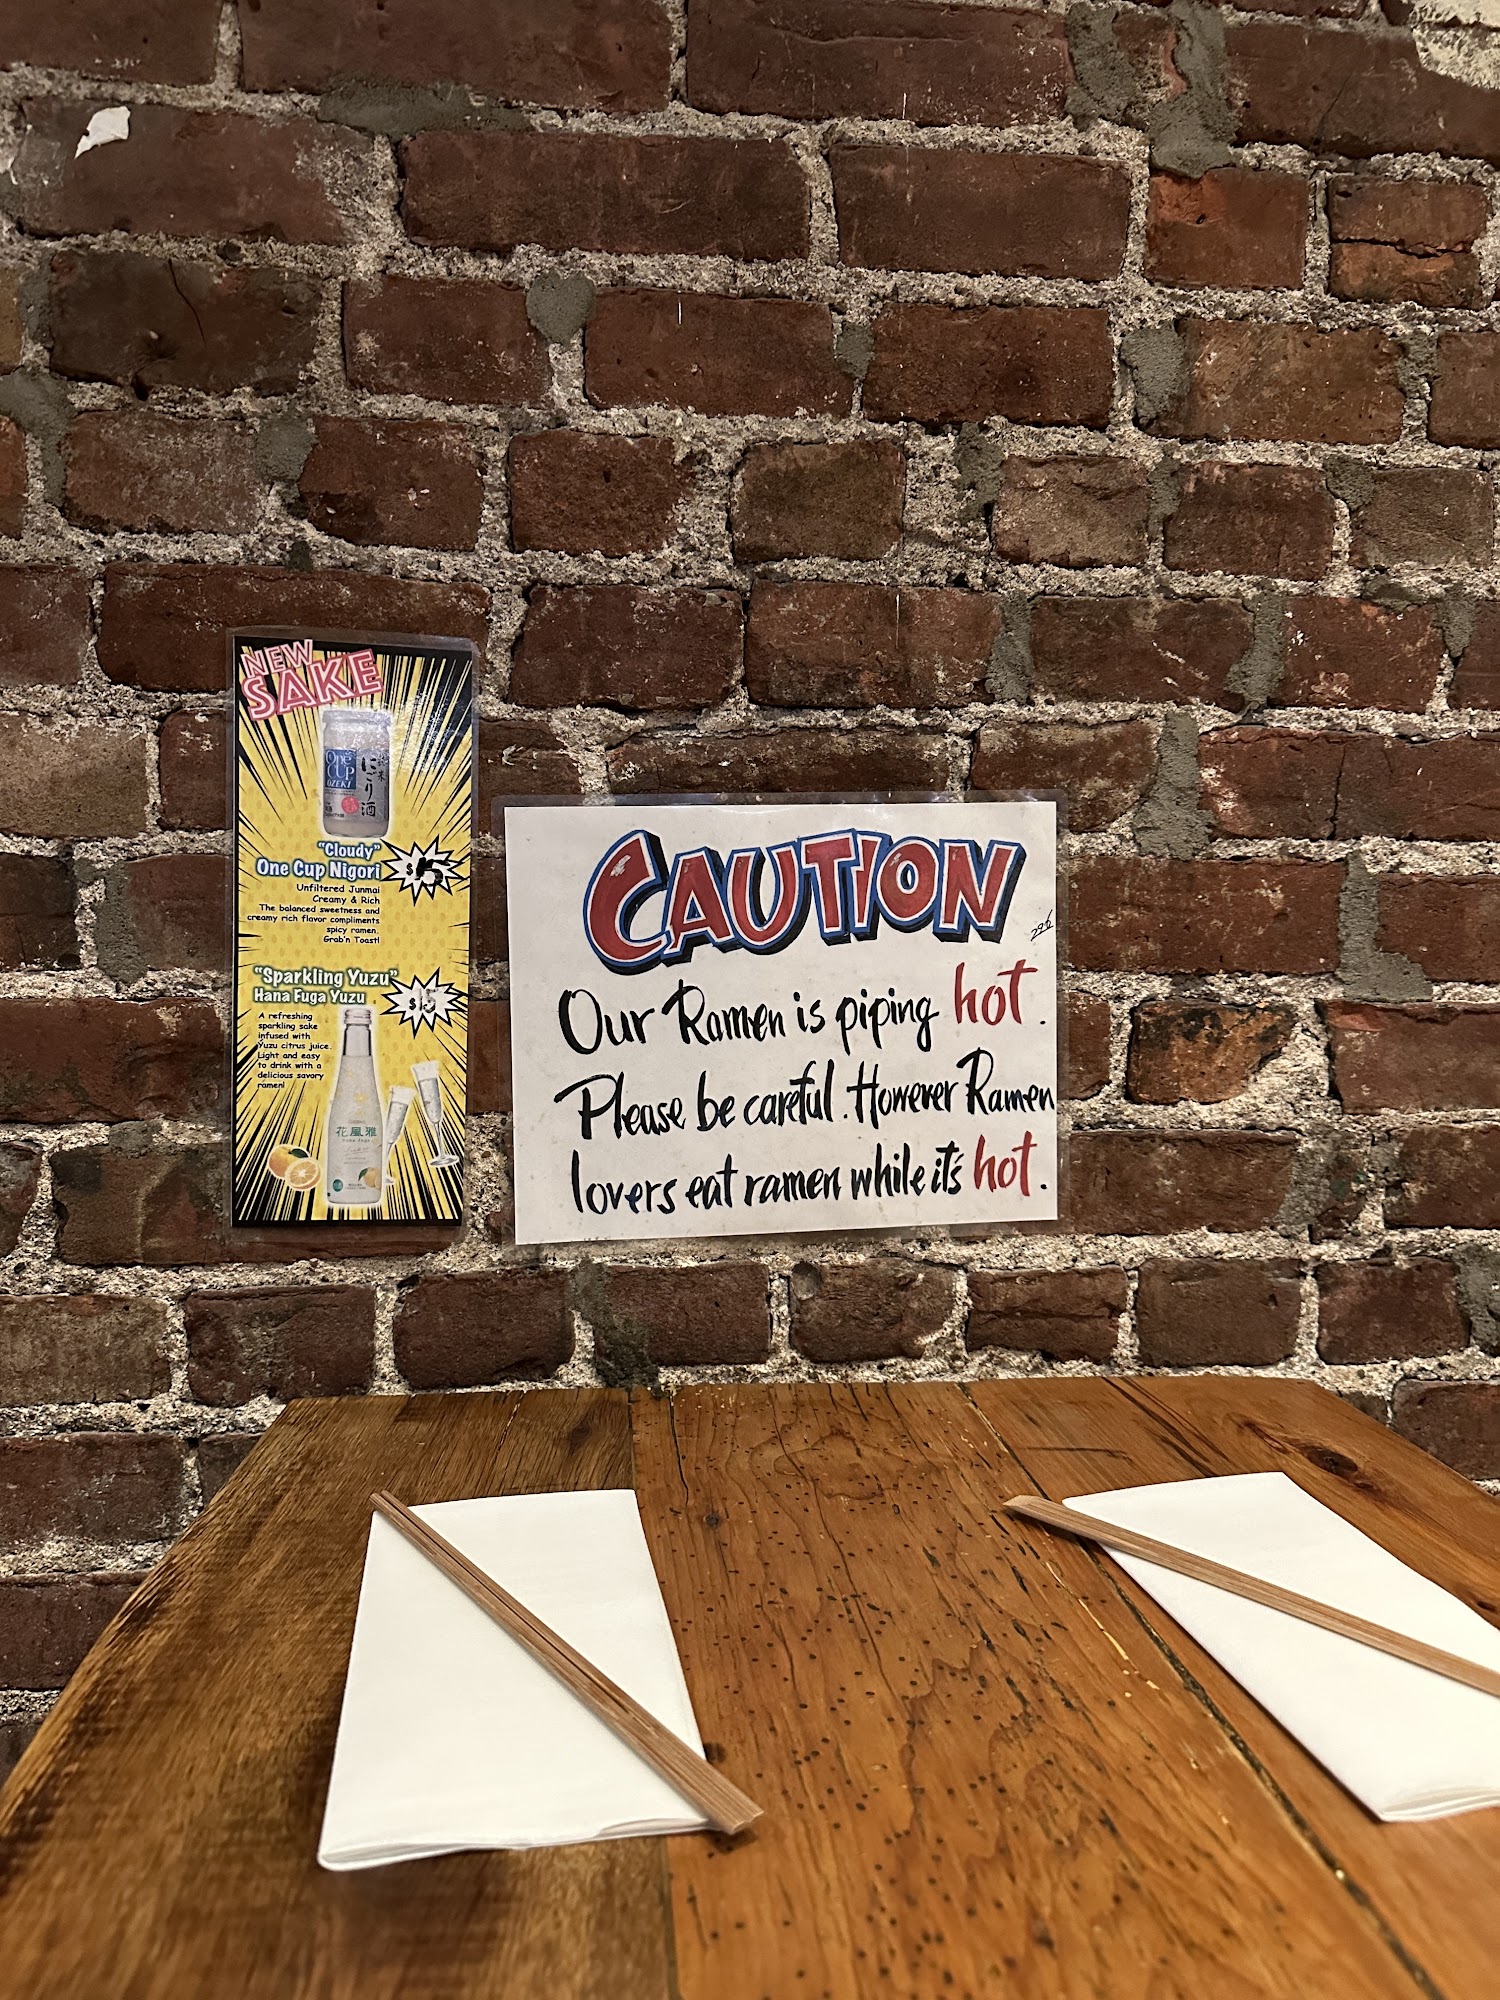 NEW
SAKE
One
CUP
OZEKI
にごり酒
"Cloudy"
One Cup Nigori
$15
Unfiltered Junmai
Creamy & Rich
The balanced sweetness and
creamy rich flavor compliments
spicy ramen.
Grab'n Toast!
"Sparkling Yuzu"
Hana Fuga Yuzu
A refreshing
sparkling sake
infused with
Yuzu citrus juice.
Light and easy
to drink with a
delicious savory
ramen!
花風雅
CAUTION
Our Ramen is piping hot.
Please be careful. However Ramen
lovers eat ramen while it's hot.